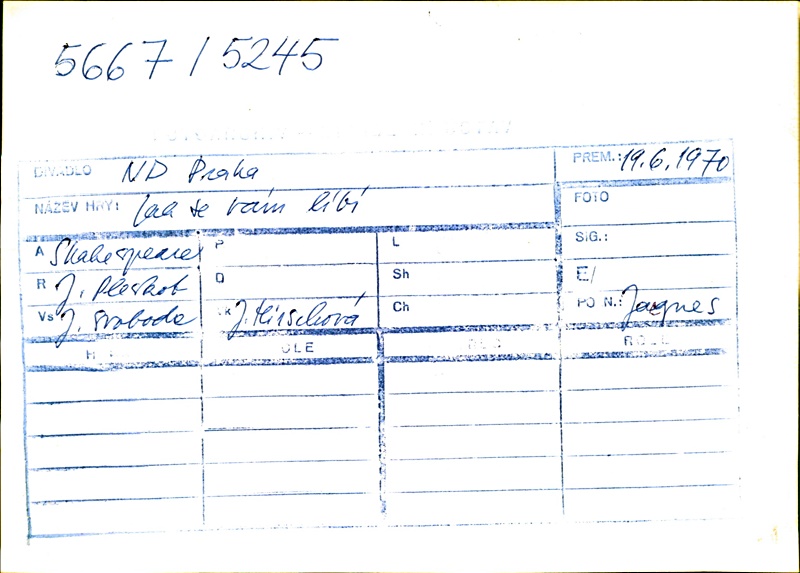 5667 / 5245
DIVADLO ND Praha PREM.: 19.6.1970
NÁZEV HRY: Jak se vám líbí FOTO
A Shakespeare P L SIG.:
R J. Pleskot O Sh E/
Vs J. Svoboda k J. Hirschová Ch PO N.: Jaques